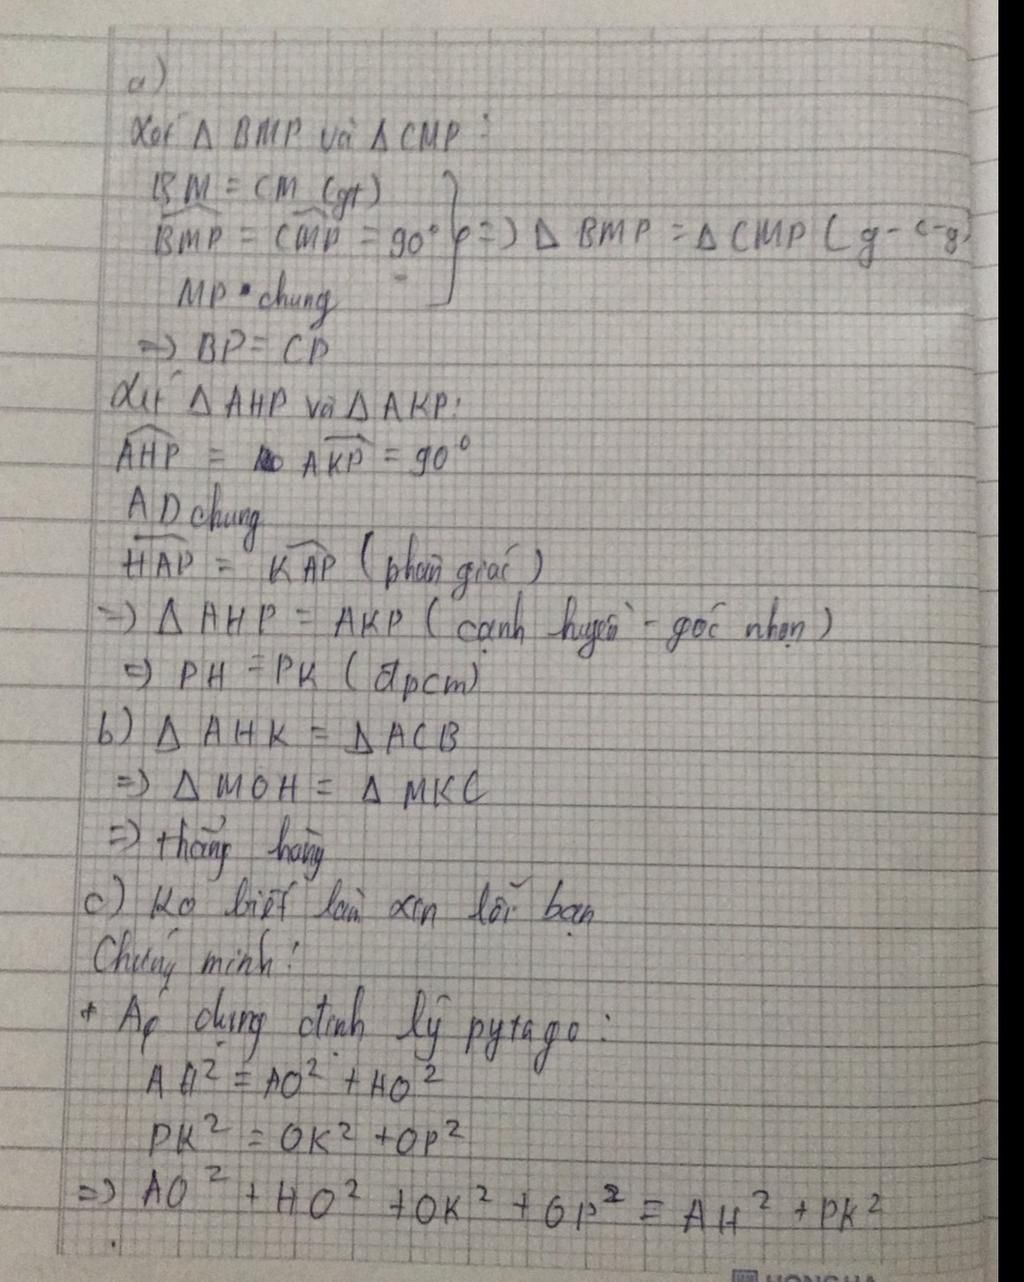 a)
Xét Δ BMP và Δ CMP :
BM = CM (gt)
BMP = CMP = 90° => Δ BMP = Δ CMP ( g - c - g)
MP chung
=> BP = CP
Xét Δ AHP và Δ AKP:
AHP = AKP = 90°
AD chung
HAP = KAP (phân giác)
=> Δ AHP = AKP ( cạnh huyền - góc nhọn )
=> PH = PK ( đpcm)
b) Δ AHK = Δ ACB
=> Δ MOH = Δ MKC
=> thẳng hàng
c) Ko biết làm xin lỗi bạn
Chứng minh:
+ Áp dụng định lý pytago :
AH² = AO² + HO²
PK² = OK² + OP²
=> AO² + HO² + OK² + OP² = AH² + PK²
HONGHA